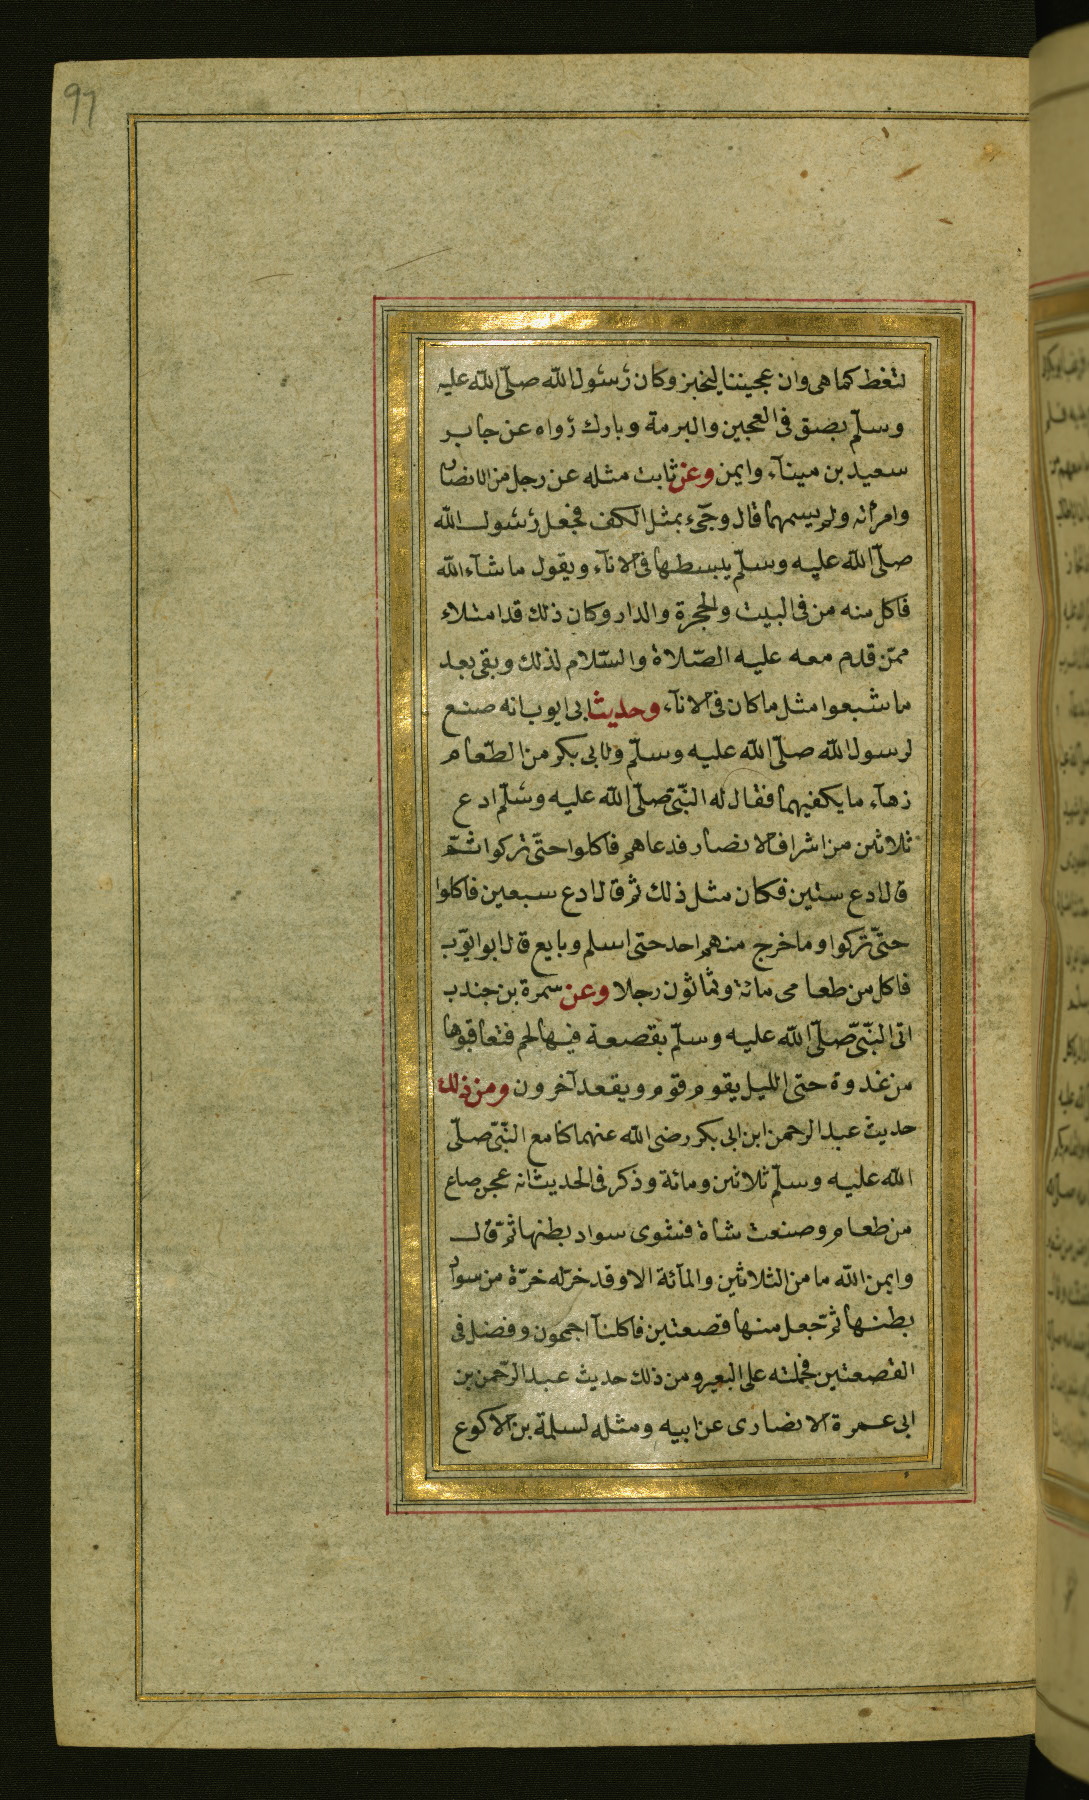 97
لتغط كما هى وان عجيننا ليخبز وكان رسول الله صلّى الله عليه
وسلّم بصق فى العجين والبرمة وبارك رواه عن جابر
سعيد بن مينآء وايمن وعن ثابت مثله عن رجل من الانصار
وامرأته ولم يسمهما قال وجىء بمثل الكف فجعل رسول الله
صلّى الله عليه وسلّم يبسطها فى الانآء ويقول ما شآء الله
فاكل منه من فى البيت والحجرة والدار وكان ذلك قد امتلاء
ممّن قدم معه عليه الصّلاة والسّلام لذلك وبقى بعد
ما شبعوا مثل ما كان فى الانآء وحديث ابى ايوب انه صنع
لرسول الله صلّى الله عليه وسلّم ولابى بكر من الطّعام
زهآء ما يكفيهما فقال له النّبىّ صلّى الله عليه وسلّم ادع
ثلاثين من اشراف الانصار فدعاهم فاكلوا حتّى تركوا ثمّ
قال ادع ستين فكان مثل ذلك ثم قال ادع سبعين فاكلوا
حتّى تركوا وما خرج منهم احد حتى اسلم وبايع قال ابو ايّوب
فاكل من طعامى مائة وثمانون رجلا وعن سمرة بن جندب
اتى النّبىّ صلّى الله عليه وسلّم بقصعة فيها لحم فتعاقبوها
من غدوة حتى الليل يقوم قوم ويقعد آخرون ومن ذلك
حديث عبد الرحمن ابن ابى بكر رضى الله عنهما كنا مع النّبىّ صلّى
الله عليه وسلّم ثلاثين ومائة وذكر فى الحديث انه عجن صاع
من طعام وصنعت شاة فشوى سواد بطنها ثمّ قال
وايمن الله ما من الثلاثين والمآئة الا وقد حزّ له حزّة من سواد
بطنها ثمّ جعل منها قصعتين فاكلنآ اجمعون وفضل فى
القصعتين فحملته على البعير ومن ذلك حديث عبد الرّحمن بن
ابى عمرة الانصارى عن ابيه ومثله لسلمة بن الاكوع